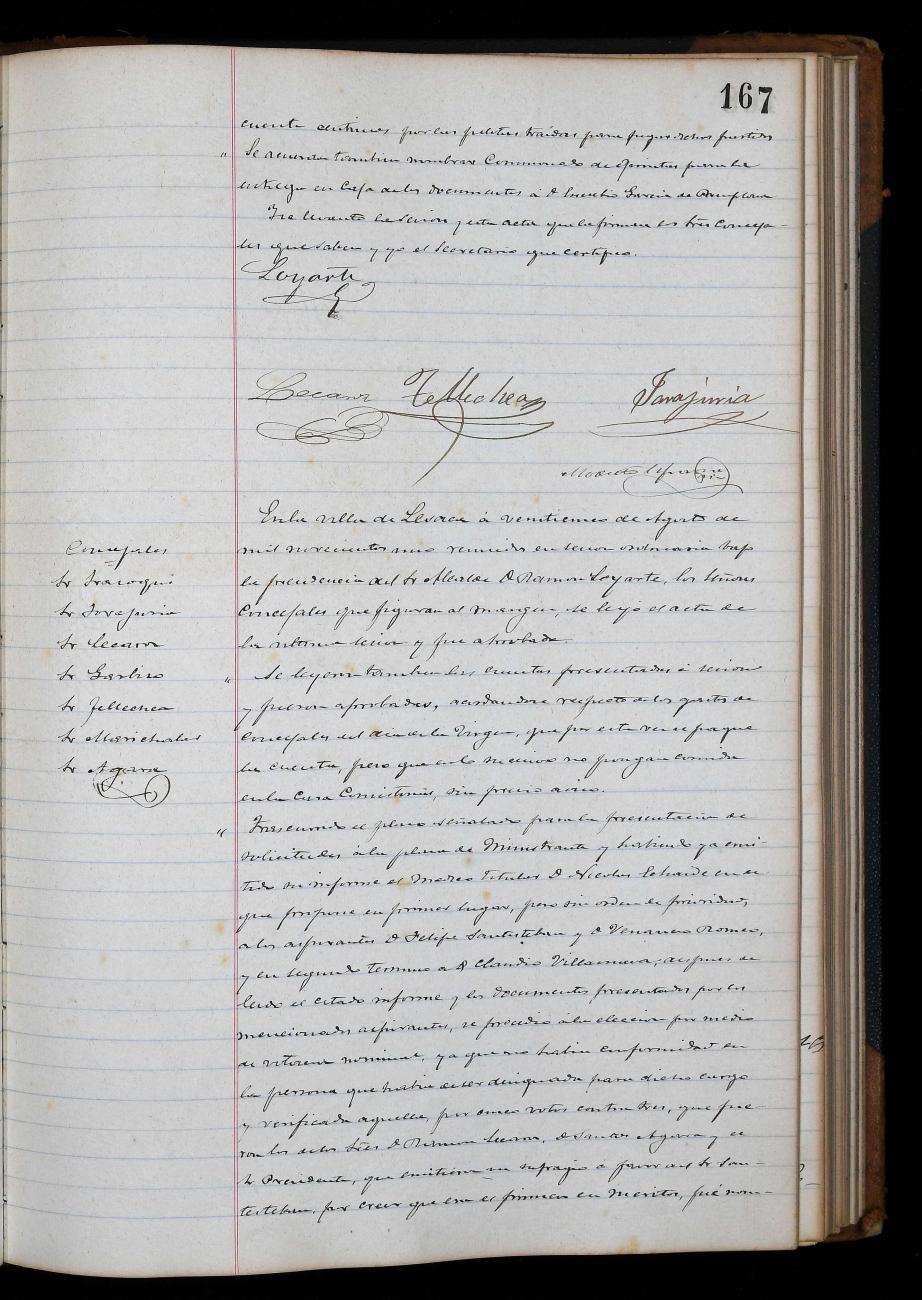 167
cuenta centimos por las pelotas traidas para jugar dichos partidos
" Se acuerda tambien nombrar Comisionado de quintas para la
entrega en Caja de los documentos á D. Eusebio Garcia de Pamplona
Y se levantó la sesion y esta acta que la firman los Sres Conceja-
les que saben y yo el Secretario que certifico.
Loyarte
Lecaroz Tellechea Iarajuria
Modesto
En la villa de Lesaca á veintinueve de Agosto de
mil novecientos uno reunidos en sesion ordinaria bajo
la presidencia del Sr Alcalde D. Ramon Loyarte, los Señores
Concejales que figuran al margen, se leyó el acta de
la ultima sesion y fue aprobada.
Concejales
Sr Iraroqui
Sr Iarajuria
Sr Lecaroz
Sr Garbiso
Sr Tellechea
Sr Marichalar
Sr Agara
" Se leyeron tambien las cuentas presentadas á sesion
y fueron aprobadas, acordandose respecto de los gastos de
Concejales del dia de la Virgen, que por esta vez se pague
la cuenta, pero que en lo sucesivo no pongan comida
en la Casa Consistorial, sin previo aviso.
" Trascurrido el plazo señalado para la presentacion de
solicitudes á la plaza de Ministrante y habiendo ya emi-
tido su informe el Medico Titular D. Nicolas Echaide en el
que propone en primer lugar, pero sin orden de prioridad,
a los aspirantes D. Felipe Santesteban y D. Venancio Romeo,
y en segundo termino a D. Claudio Villanueva; despues de
leido el citado informe y los documentos presentados por los
mencionados aspirantes, se procedió á la eleccion por medio
de votacion nominal, ya que no habia conformidad en
la persona que habia de ser designada para dicho cargo
y verificada aquella, por cinco votos contra tres, que fue-
ron los de los Sres D. Ramon Lecaroz, D. Santos Agara y el
Sr Presidente, que emitieron su sufragio á favor del Sr San-
testeban, por creer que era el primero en meritos, fué nom-